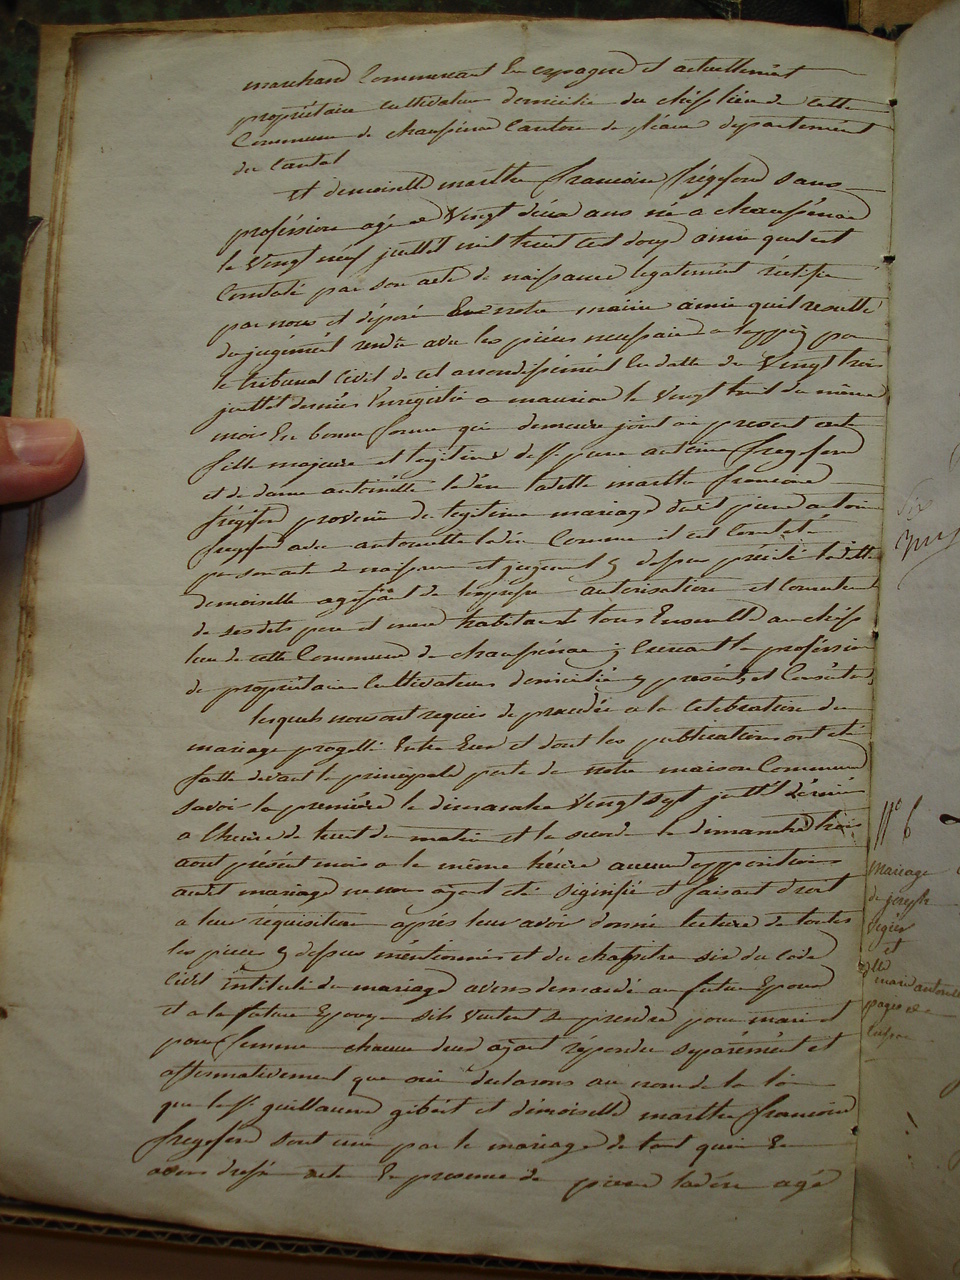 marchand Commercant En espagne et actuellement
propriétaire cultivateur domicilié du chef lieu de cette
Commune de chaussenac Canton de pleaux département
du Cantal
et demoiselle marthe francoise frégefond sans
proféssion agée de Vingt deux ans né a chaussenac
le Vingt neuf juillet mil huit cet douze ainsi quil est
Constaté par son acte de naissance légatement réctifié
par nous et déposé En notre mairie ainsi quil resulte
du jugément rendu avec les pièces necessaire a lappuy par
le tribunal Civil de cet arrondissément En datte du Vingt trois
juillet dernier Enregistré a mauriac le Vingt huit du même
mois En bonne forme qui demeure joint au present acte
fille majeure et legitime de sr. pierre antoine fregefond
et de dame antoinette ladite marthe francoise
frégefond provenu du legitime mariage dudit pierre antoine
fregefond avec antoinette Comme il est Constaté
par son acte de naissance et jugement cy dessus précité ladite
demoiselle agissant de lexpresse autorisation et consentement
de ses dits pere et mere habitant tous Ensemble au chef
lieu de cette Commune de chaussenac y Exercant la proféssion
de propriétaires Cultivateurs domiciliés y présents et Consentants
lesquels nous ont requis de procéder a la Celebration du
mariage projetté Entre Eux et dont les publications ont été
faitte devant la principale porte de notre maison Commune
savoir la première le dimanche Vingt sept juillet dérnié
a lheure de huit du matin et la seconde le dimanche trois
aout présent mois a la même heure aucune opposition
audit mariage ne nous ayant été siginfié et faisant droit
a leur réquisition aprés leur avoir donné lecture de toutes
les pieces cy dessus méntionnées et du chapitre six du Code
Civil intitulé du mariage avons demandé au futur Epoux
et a la future Epouze sils Veulent se prendre pour mari et
pour femme chacun deux ayant répondu séparément et
affirmativement que oui déclarons au nom de la loi
que le sr. guillaume gibert et démoiselle marthe francoise
fregefond sont unis par le mariage de tout quoi En
avons dressé acte En presence de pierre agé
N° 6
mariage
de joseph
et
lle
marie antoinette
pages de